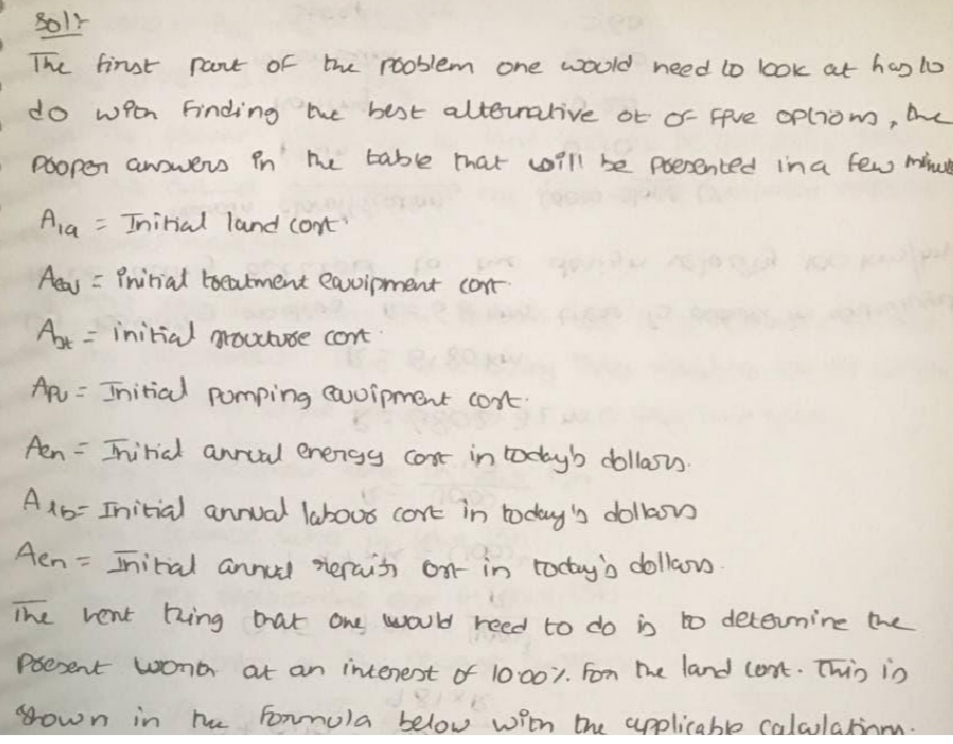 Sol:-
The first part of the problem one would need to look at has to
do with finding the best alternative ot of five options, the
pooper answers in the table that will be poesented in a few
A1a = Initial land cost
Aeq = initial toeatment equipment cost
Ast = initial structure cost
Apu = Initial pumping equipment cost.
Aen = Initial annual energy cost in today's dollars.
A1b = Initial annual labour cost in today's dollars
Aen = Initial annual repairs ost in today's dollars.
The next thing that one would need to do is to determine the
poesent worth at an interest of 10.00%. For the land cost. This is
shown in the formula below with the applicable calculations.